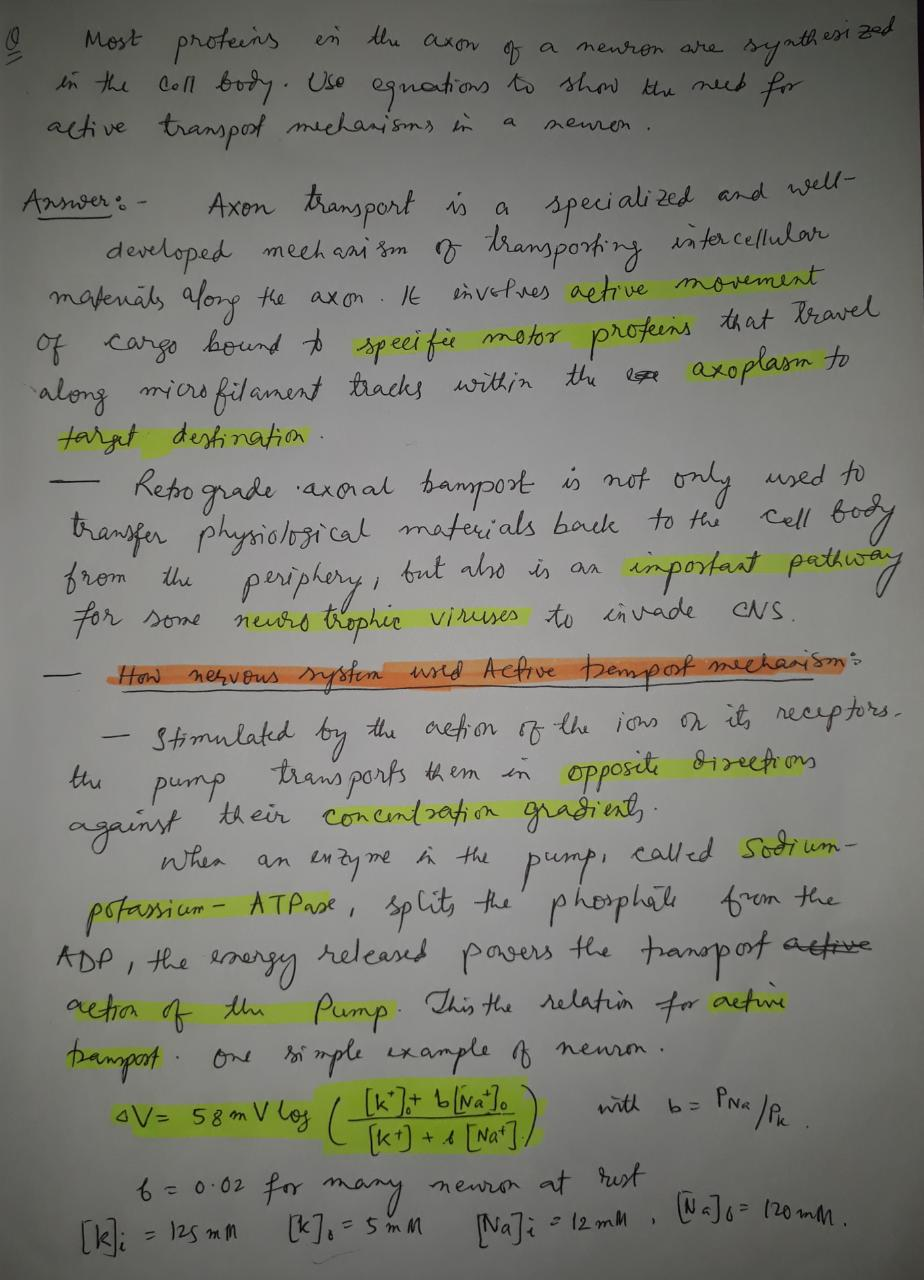 Q Most proteins in the axon of a neuron are synthesized
in the cell body. Use equations to show the need for
active transport mechanisms in a neuron.
Answer:- Axon transport is a specialized and well-
developed mechanism of transporting intercellular
materials along the axon. It involves active movement
of cargo bound to specific motor proteins that travel
along microfilament tracks within the axoplasm to
target destination.
— Retrograde axonal transport is not only used to
transfer physiological materials back to the cell body
from the periphery, but also is an important pathway
for some neurotrophic viruses to invade CNS.
— How nervous system used Active transport mechanism:
— Stimulated by the action of the ions on its receptors.
the pump transports them in opposite directions
against their concentration gradients.
When an enzyme in the pump, called Sodium-
potassium-ATPase, splits the phosphate from the
ADP, the energy released powers the transport active
action of the Pump. This the relation for active
transport. One simple example of neuron.
ΔV = 58mV log ( [K+]o + b[Na+]o / [K+] + b [Na+] ) with b = PNa/Pk
b = 0.02 for many neuron at rest
[K]i = 125 mM [K]o = 5 mM [Na]i = 12 mM, [Na]o = 120 mM.